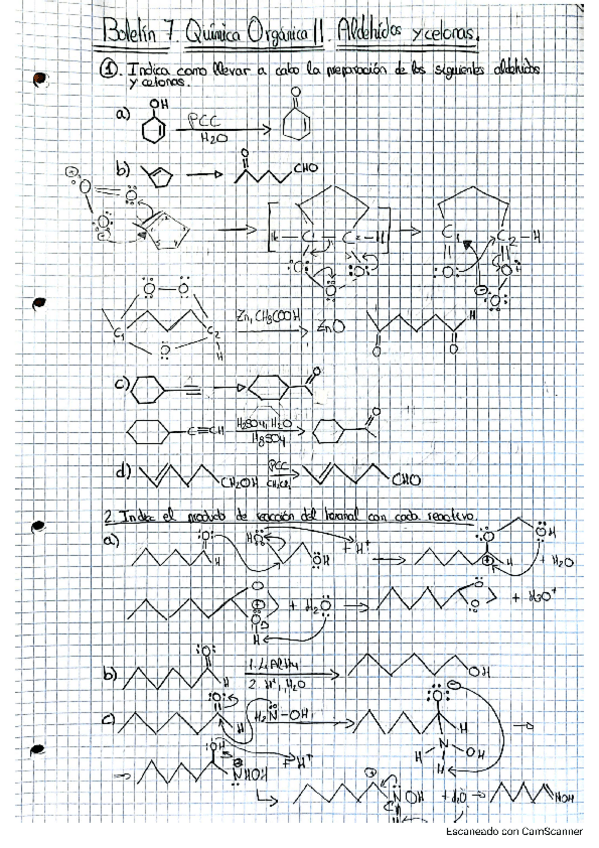 Boletín 7. Química Orgánica II. Aldehídos y cetonas.
①. Indica como llevar a cabo la preparación de los siguientes aldehídos
y cetonas.
a) OH PCC H2O O
b) O CHO
C1 C2 H
C1 C2 H
Zn, CH3COOH ZnO H O O
c) O
C≡CH H2SO4, H2O HgSO4 O
d) CH2OH PCC CH2Cl2 CHO
2. Indica el producto de reacción del hexanal con cada reactivo.
a) O H HO OH + H+ O OH H + H2O
O O H + H2O O O + H3O+
b) O H 1. LiAlH4 2. H+, H2O OH
c) O H H2N-OH O H N OH H
OH NHOH + H+
NOH + H2O NOH
Escaneado con CamScanner